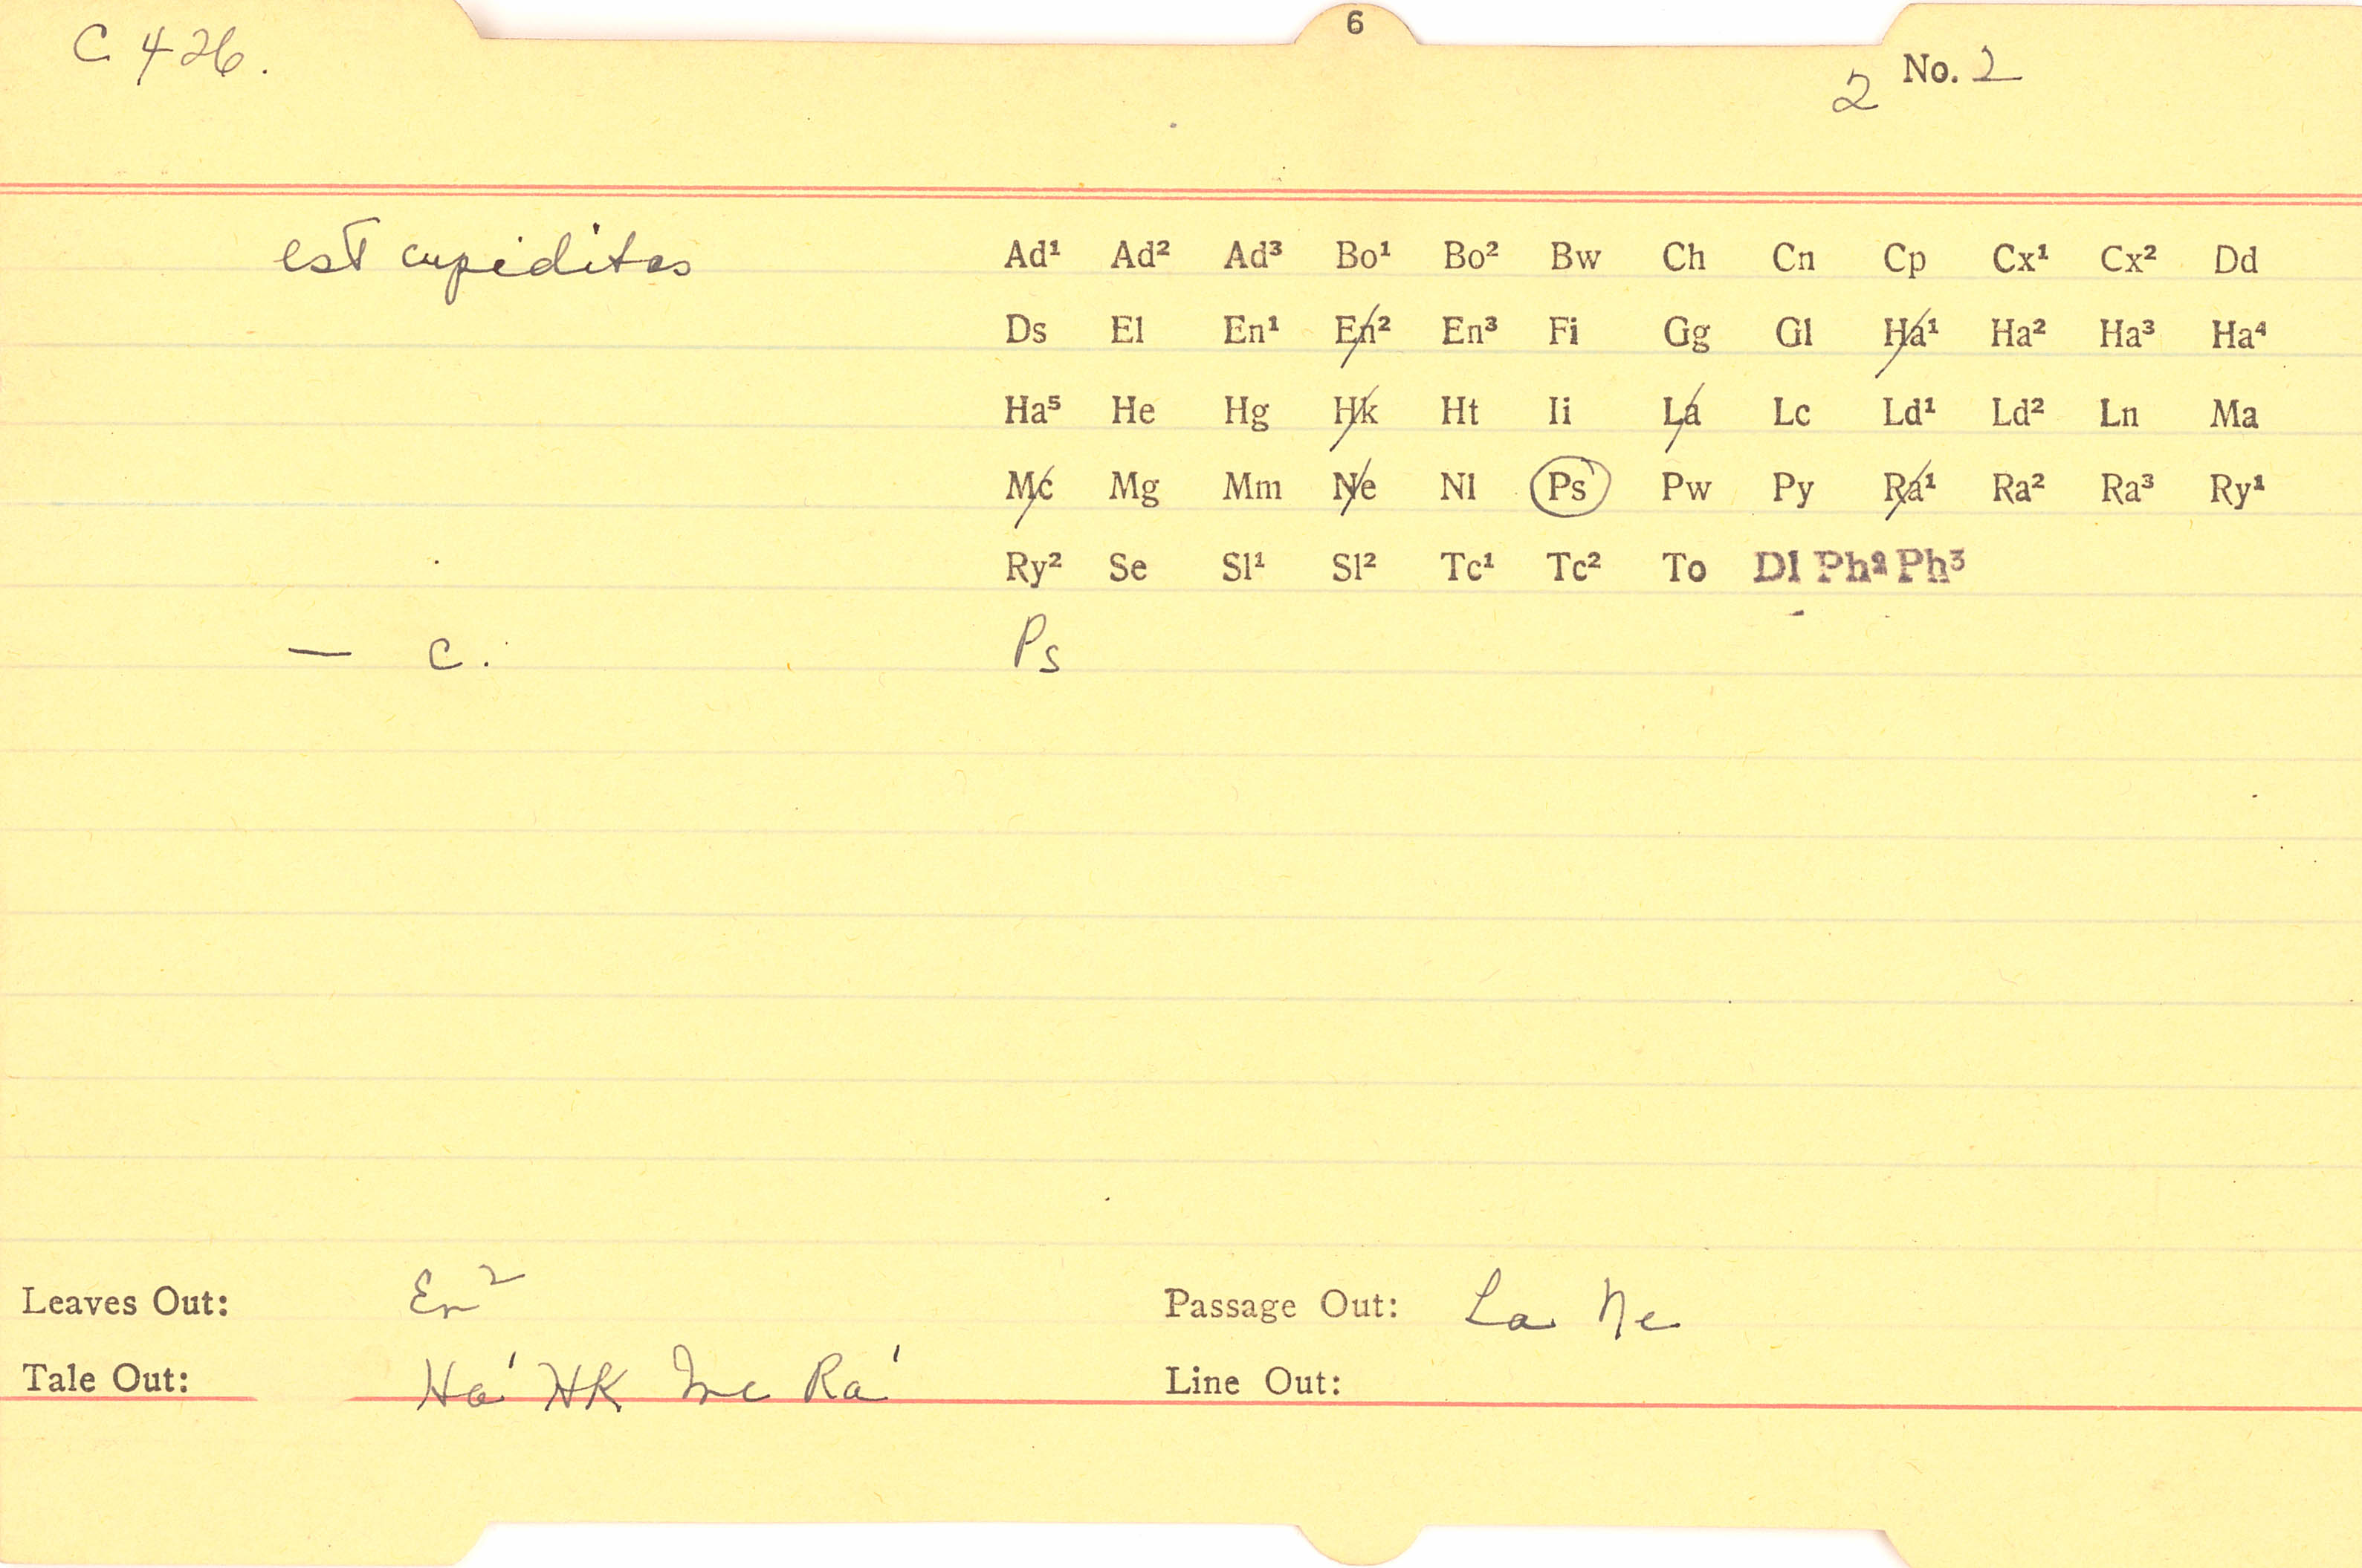 6
C 426.
No. 2
2
est cupiditas Ad¹ Ad² Ad³ Bo¹ Bo² Bw Ch Cn Cp Cx¹ Cx² Dd
Ds El En¹ En² En³ Fi Gg Gl Ha¹ Ha² Ha³ Ha⁴
Ha⁵ He Hg Hk Ht Ii La Lc Ld¹ Ld² Ln Ma
Mc Mg Mm Ne Nl Ps Pw Py Ra¹ Ra² Ra³ Ry¹
Ry² Se Sl¹ Sl² Tc¹ Tc² To Dl Ph² Ph³
— c. Ps
Leaves Out: En² Passage Out: La Ne
Tale Out: Ha¹ HK Mc Ra¹ Line Out: